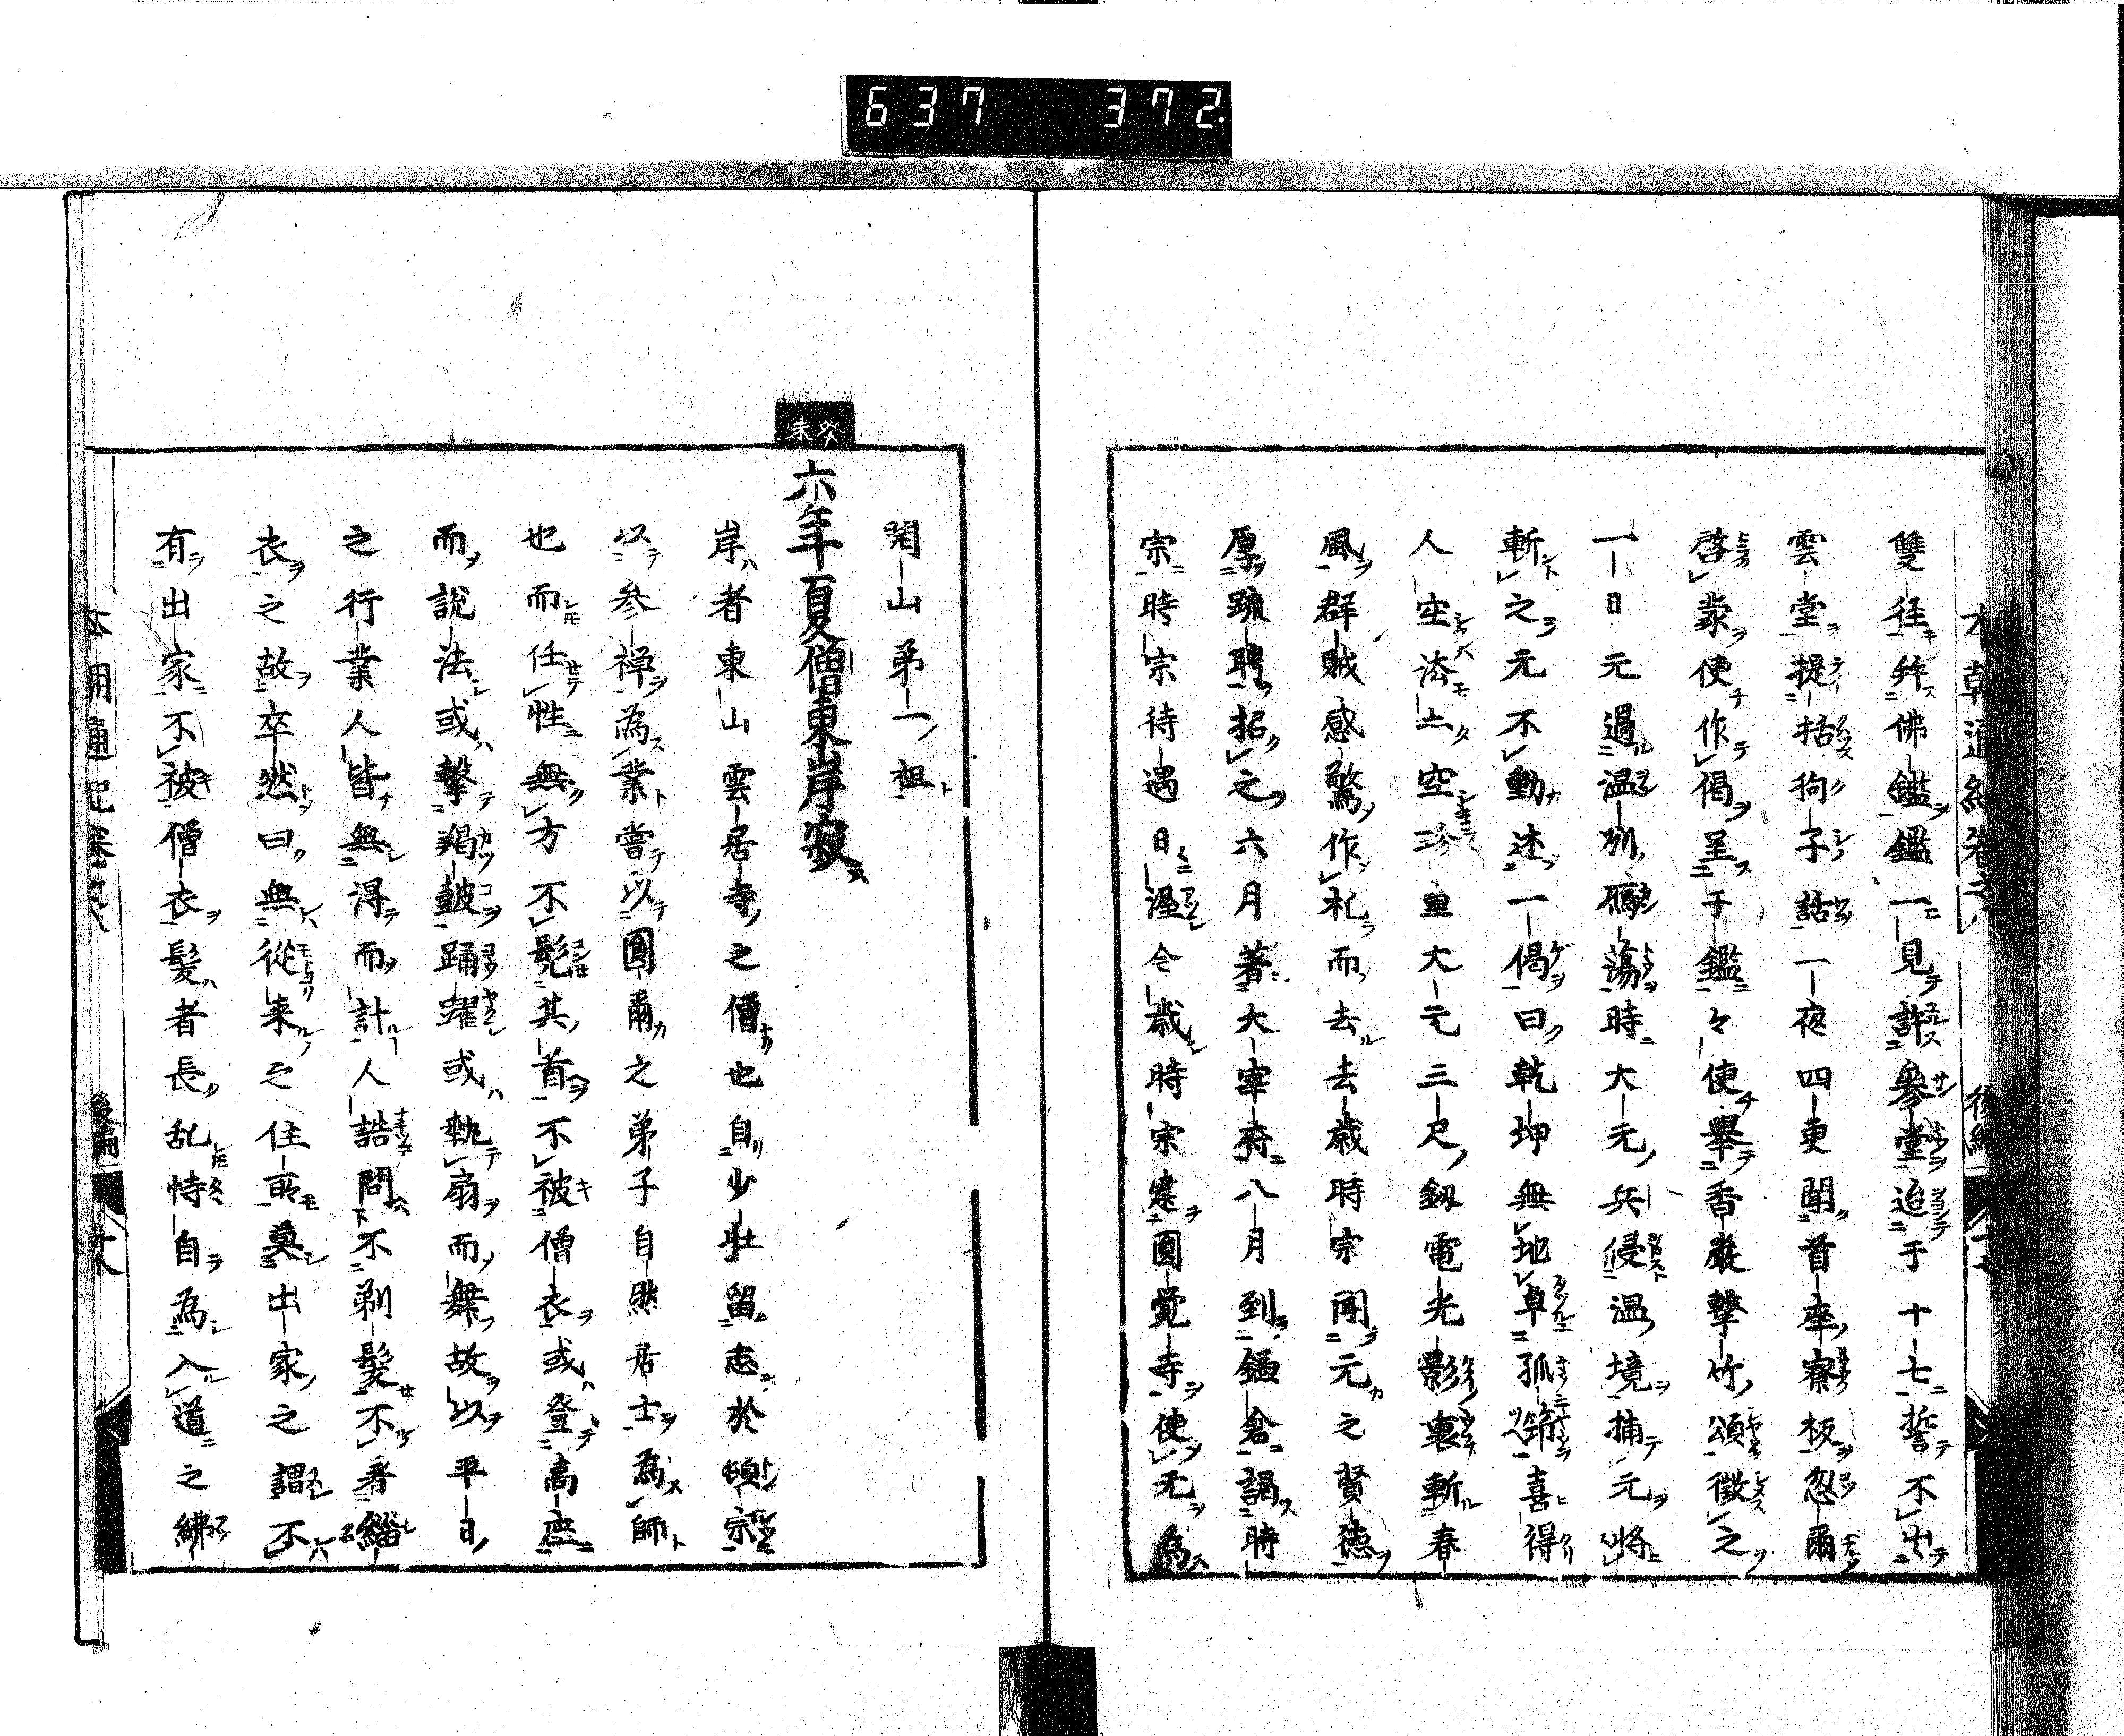 637 372
雙径拜佛鑑鑑一見許參堂迨于十七誓不出
雲堂提括狗子話一夜四更聞首座寮板忽爾
啓蒙使作偈呈于鑑々使舉香嚴擊竹頌徵之
一日元過温州鴈蕩時大元兵侵温境捕元將
斬之元不動述一偈曰乾坤無地卓孤筇喜得
人空法亠空珍重大元三尺釼電光影裏斬春
風群賊感驚作礼而去去歳時宗聞元之賢德
厚疏聘招之六月著大宰府八月到鎌倉謁時
宗時宗待遇日渥今歳時宗建圓覚寺使元為
開山第一祖
癸未
六年夏僧東岸寂
岸者東山雲居寺之僧也自少壯留志於頓宗
以参禅為業嘗以圓爾之弟子自然居士為師
也而任性無方不髡其首不被僧衣或登高座
而說法或擊羯鼓踊躍或執扇而舞故以平日
之行業人皆無得而計人誥問不剃髮不著緇
衣之故卒然曰無從来之住所奠出家之謂不
有出家不被僧衣髮者長乱恃自為入道之紼